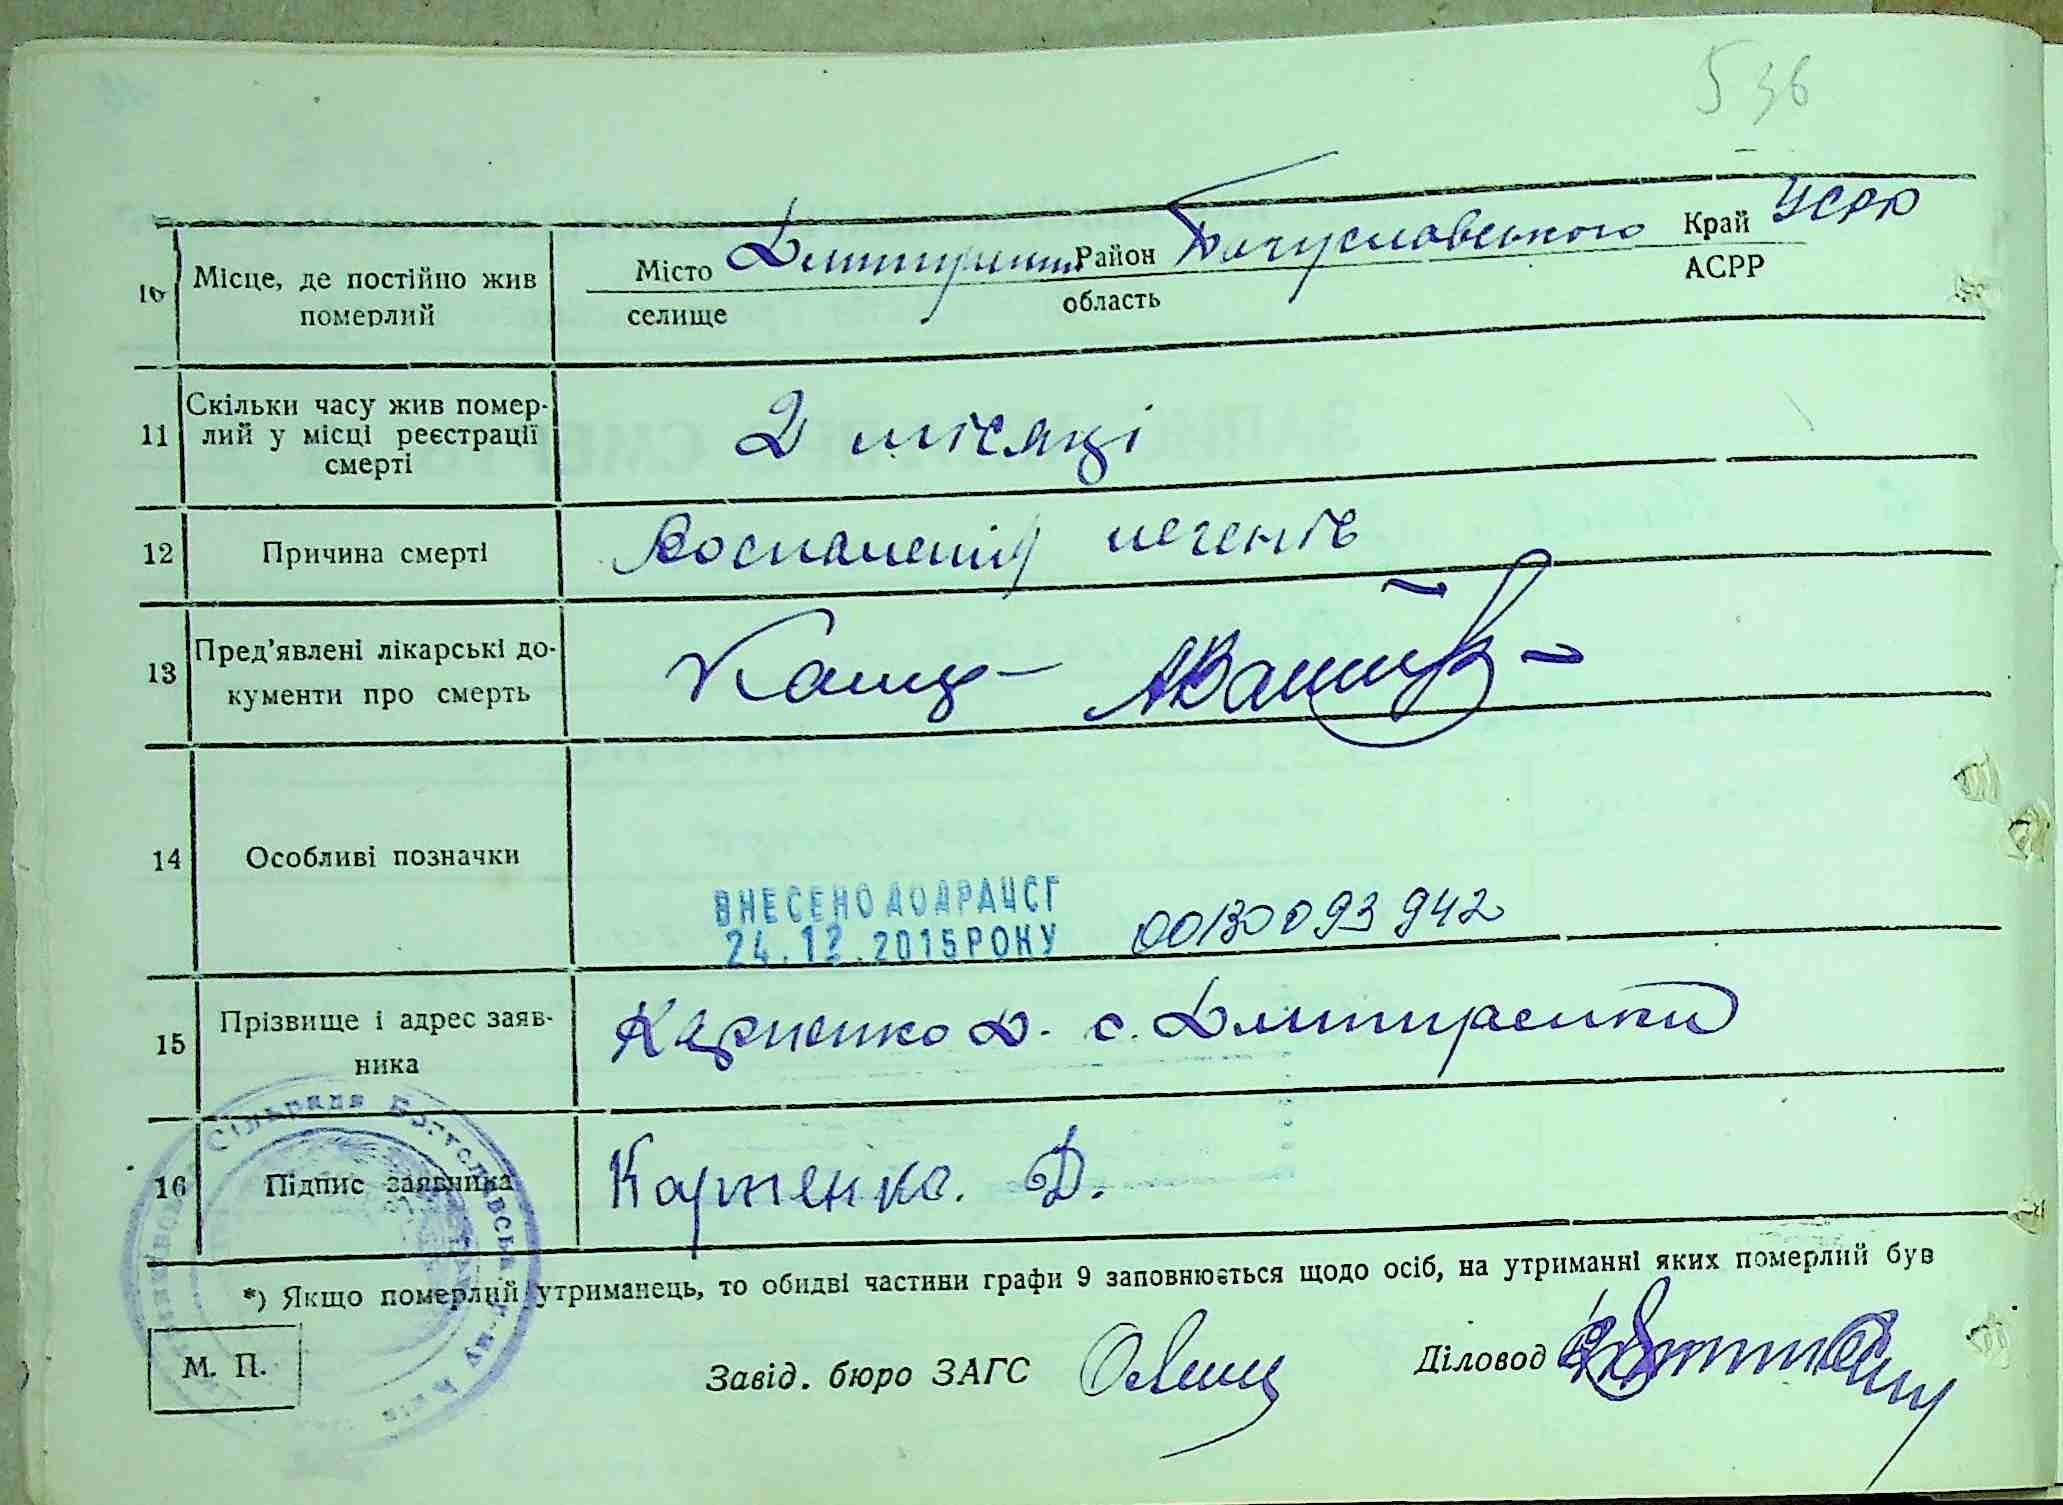 536
10 Місце, де постійно жив померлий Місто селище Район Богуславського область Край УСРР АСРР
11 Скільки часу жив помер-
лий у місці реєстрації
смерті
2 місяці
12 Причина смерті Воспаления легенів
13 Пред'явлені лікарські до-
кументи про смерть
14 Особливі позначки
ВНЕСЕНО ДО ДРАЦСГ
24.12.2015 РОКУ 00130093942
15 Прізвище і адрес заяв-
ника
Карпенко Д. с. Дмитренки
16 Підпис заявника Карпенко. Д.
*) Якщо померлий утриманець, то обидві частини графи 9 заповнюється щодо осіб, на утриманні яких померлий був
М. П. Завід. бюро ЗАГС Діловод
Сільрада Богуславськ